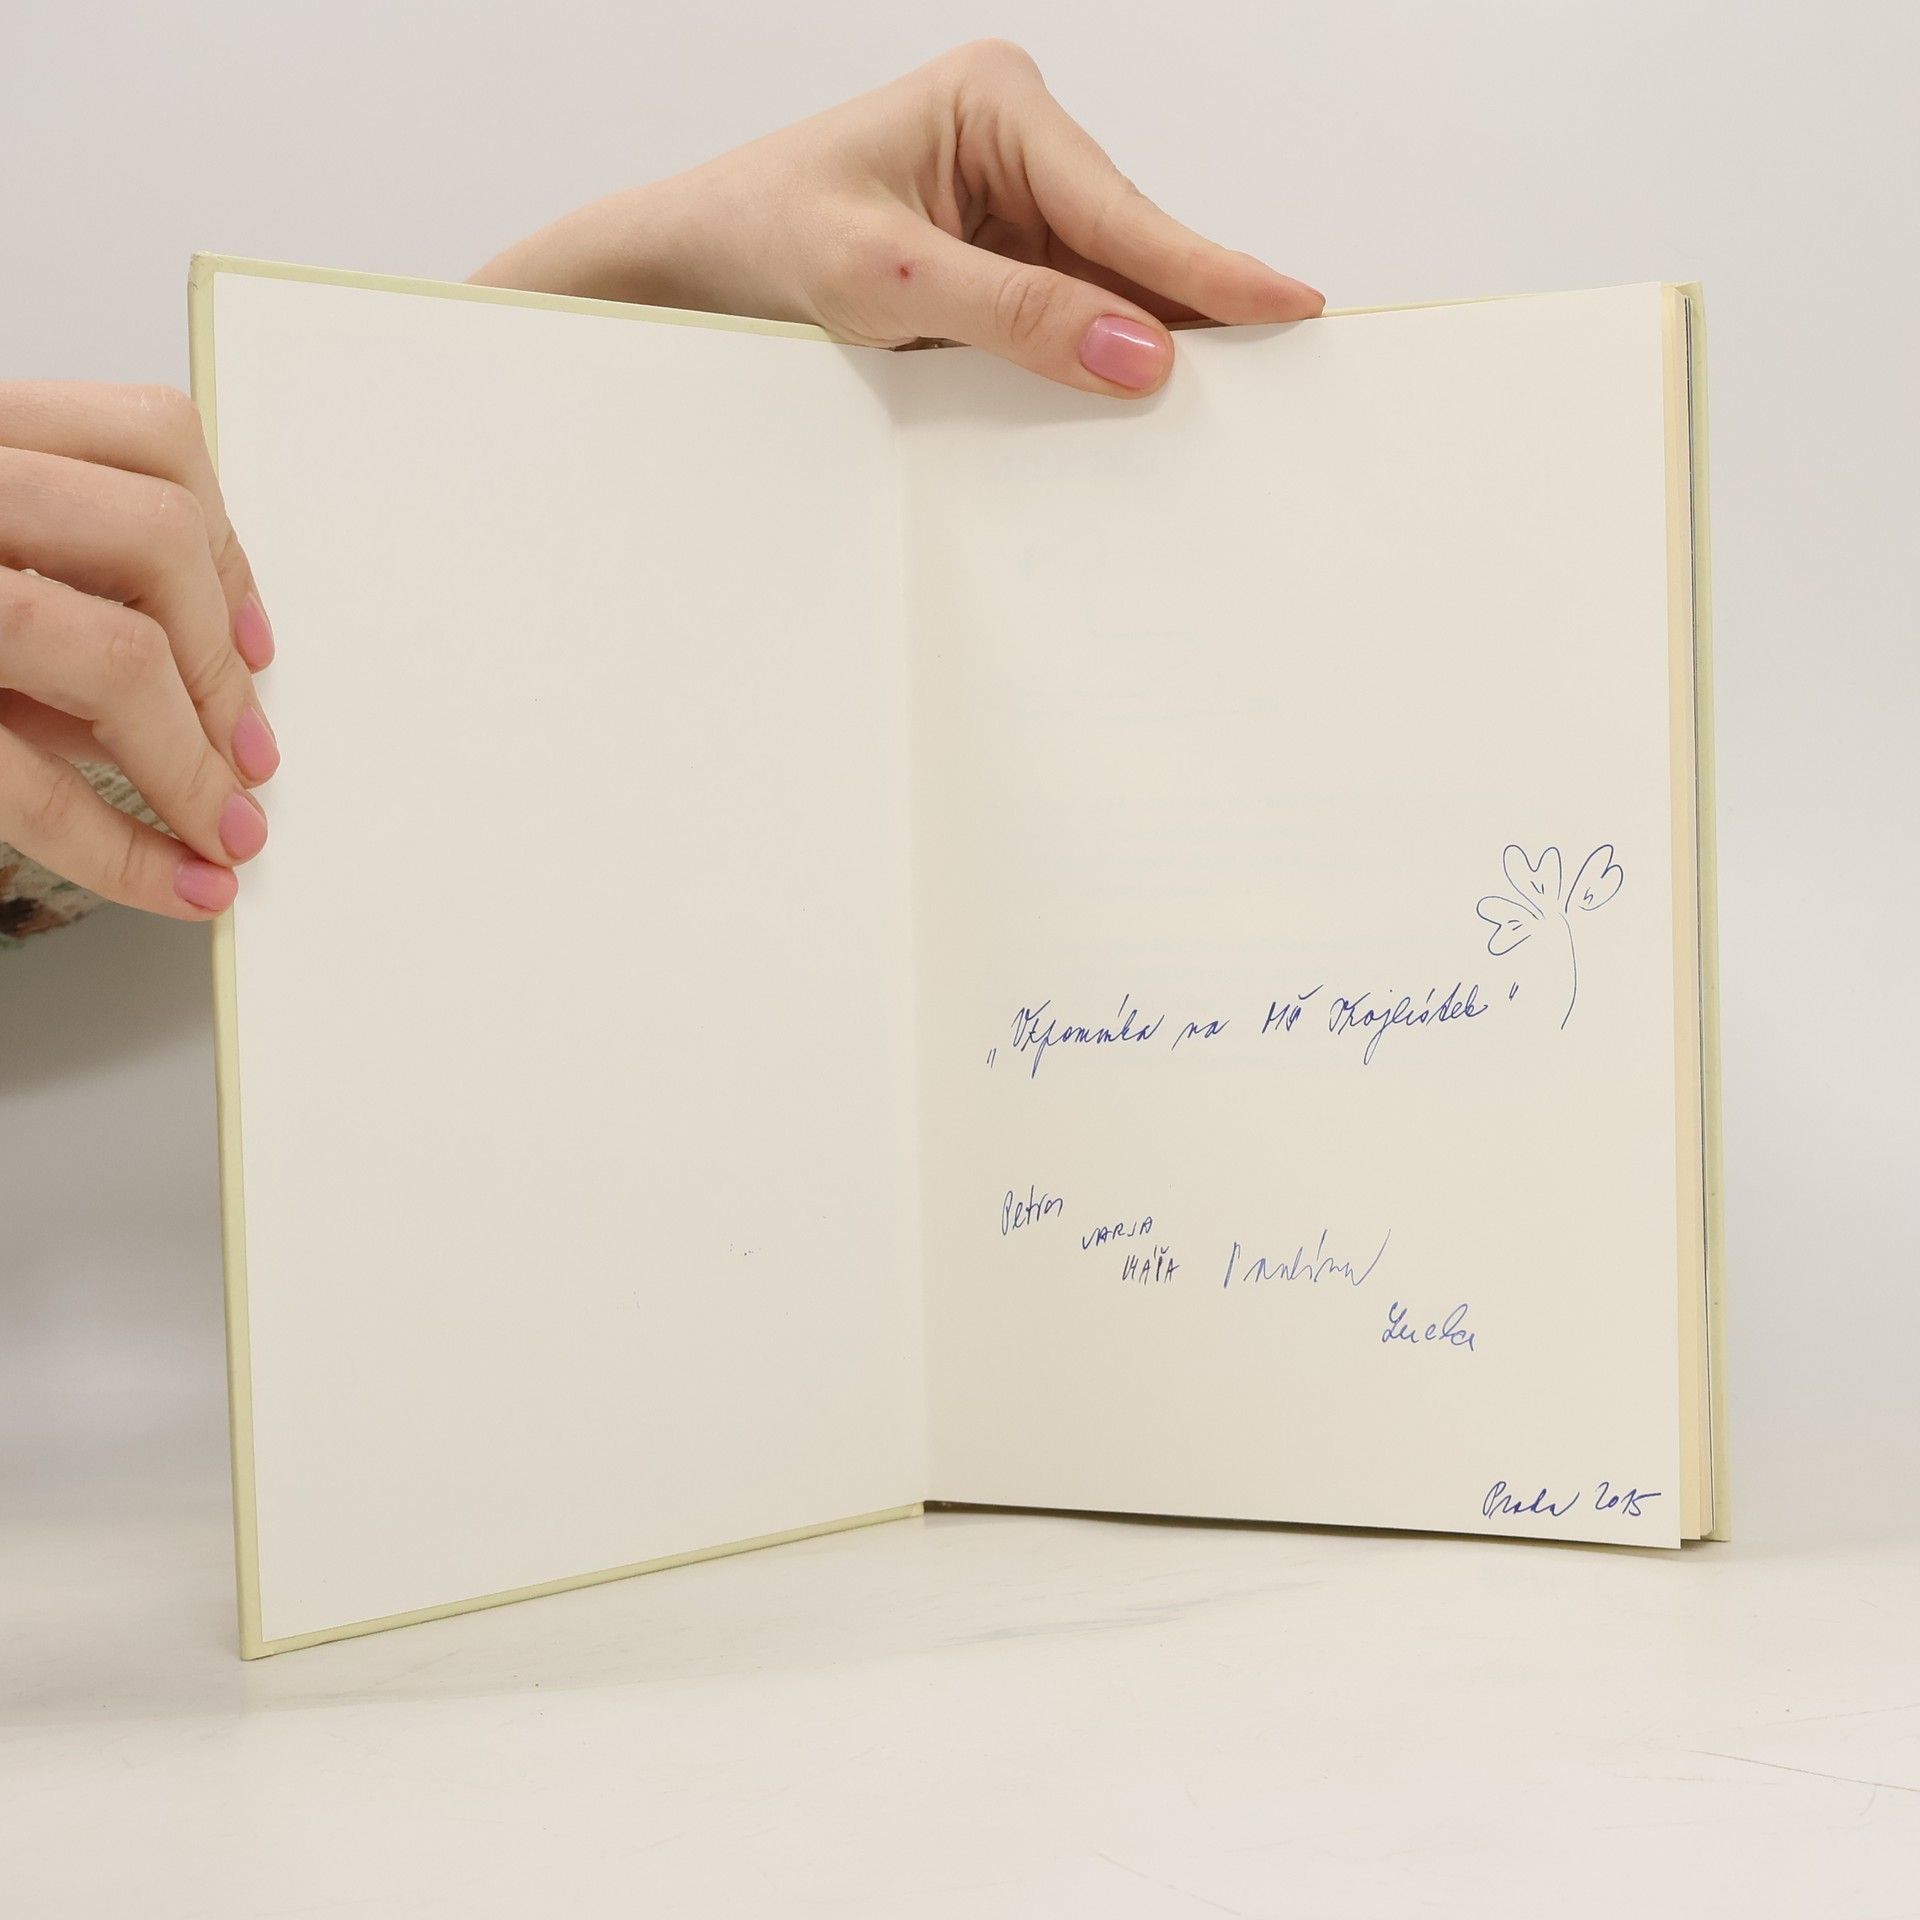 „Vzpomínka na MŠ Trojlístek"
Petra
VARJA
KÁŤA Pavlína
Lucka
Praha 2015